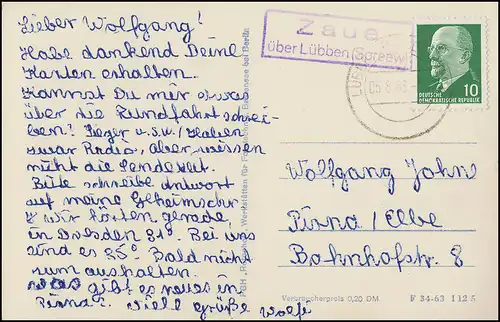 Lieber Wolfgang!
Habe dankend Deine
Karten erhalten.
Kannst Du mir etwas
über die Rundfahrt schrei-
ben? Sieger u.s.w. Haben
zwar Radio, aber wissen
nicht die Sendezeit.
Bitte schreibe Antwort
auf meine
wir hörten gerade,
in Dresden 31°. Bei uns
sind es 35°. Bald nicht
zum aushalten.
Was gibt es neues in
Pirna? Viele grüße Wolfi
Zaue
über Lübben (Spreew
10
DEUTSCHE
DEMOKRATISCHE REPUBLIK
Wolfgang John
Pirna/Elbe
Bahnhofstr. 8
Verbraucherpreis 0,20 DM F 34-63 112 5